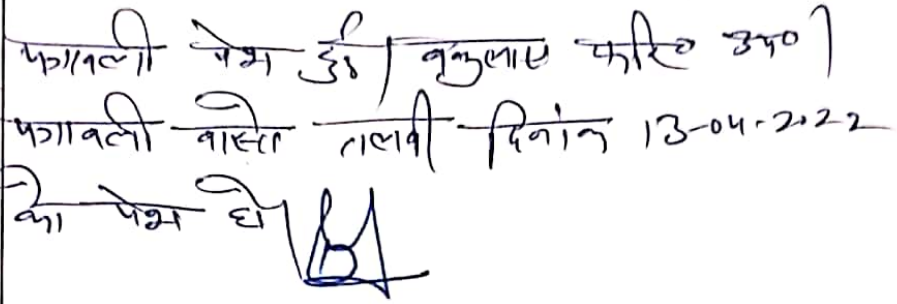 पत्रावली पेश हुई। वकुलाए फरि० उप०।
पत्रावली वास्ते तलबी दिनांक 13-04-2022
को पेश हो।